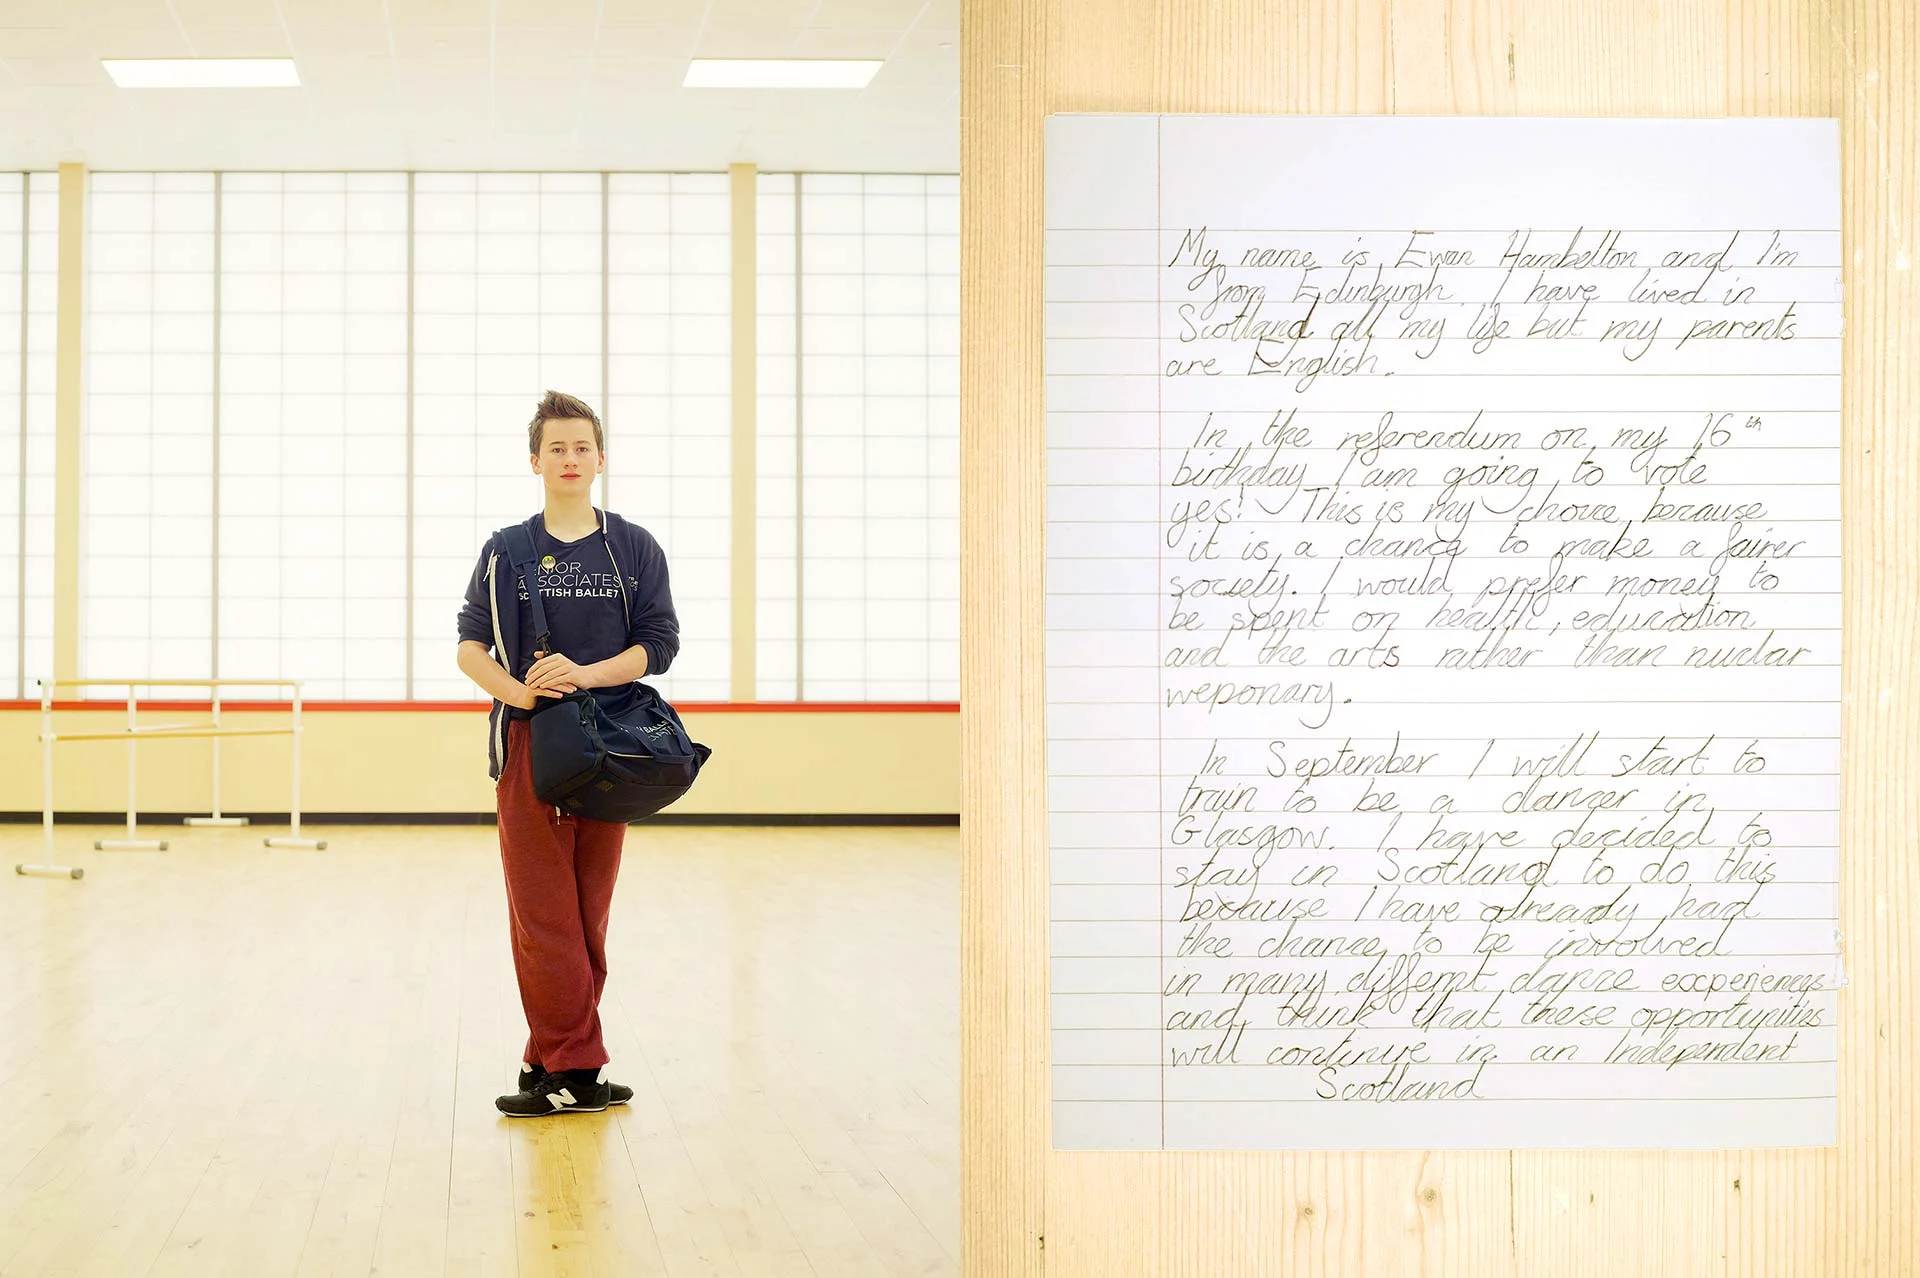 NIOR
ASSOCIATES
SCOTTISH BALLET
N
My name is Ewan Hambelton and I'm
from Edinburgh. I have lived in
Scotland all my life but my parents
are English.
In the referendum on my 16th
birthday I am going to vote
yes! This is my choice, because
it is a chance to make a fairer
society. I would prefer money to
be spent on health, education
and the arts rather than nuclar
weponary.
In September I will start to
train to be a dancer in
Glasgow. I have decided to
stay in Scotland to do this
because I have already had
the chance to be involved
in many differnt dance experiences
and think that these opportunities
will continue in an Independent
Scotland